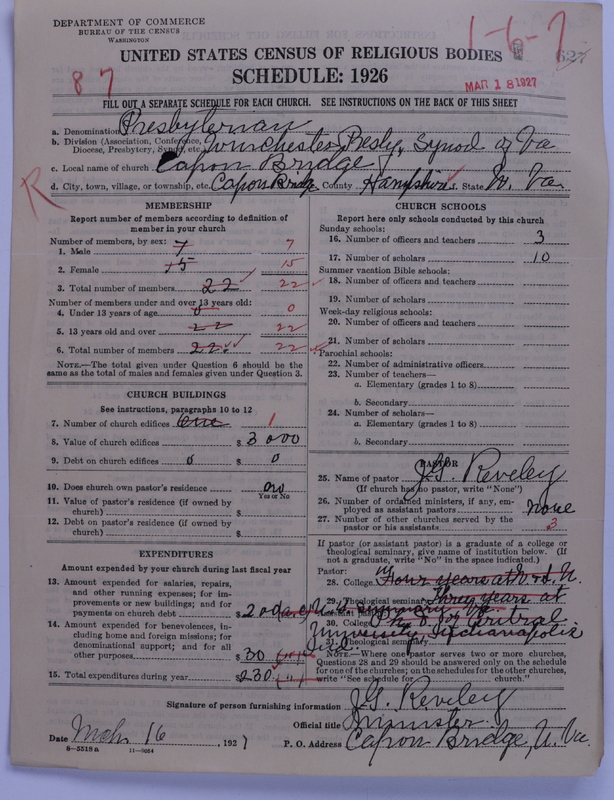 DEPARTMENT OF COMMERCE
BUREAU OF THE CENSUS
WASHINGTON
1-6-7
627
UNITED STATES CENSUS OF RELIGIOUS BODIES
87
SCHEDULE: 1926
MAR 18 1927
FILL OUT A SEPARATE SCHEDULE FOR EACH CHURCH. SEE INSTRUCTIONS ON THE BACK OF THIS SHEET
a. Denomination Presbyterian
b. Division (Association, Conference, Diocese, Presbytery, Synod, etc.) Winchester Presby, Synod of Va
c. Local name of church Capon Bridge
R
d. City, town, village, or township, etc. Capon Bridge County Hampshire f. State W. Va.
MEMBERSHIP
Report number of members according to definition of
member in your church
Number of members, by sex:
1. Male 7 7
2. Female 15 15
3. Total number of members 22 22
Number of members under and over 13 years old:
4. Under 13 years of age 0 0
5. 13 years old and over 22 22
6. Total number of members 22 22
NOTE.—The total given under Question 6 should be
same as the total of males and females given under Question 3.
CHURCH BUILDINGS
See instructions, paragraphs 10 to 12
7. Number of church edifices One 1
8. Value of church edifices $ 3000
9. Debt on church edifices 0 $ 0
10. Does church own pastor's residence no
Yes or No
11. Value of pastor's residence (if owned by
church) $
12. Debt on pastor's residence (if owned by
church) $
EXPENDITURES
Amount expended by your church during last fiscal year
13. Amount expended for salaries, repairs,
and other running expenses; for im-
provements or new buildings; and for
payments on church debt $ 200
14. Amount expended for benevolences, in-
cluding home and foreign missions; for
denominational support; and for all
other purposes $ 30
15. Total expenditures during year $ 230
CHURCH SCHOOLS
Report here only schools conducted by this church
Sunday schools:
16. Number of officers and teachers 3
17. Number of scholars 10
Summer vacation Bible schools:
18. Number of officers and teachers
19. Number of scholars
Week-day religious schools:
20. Number of officers and teachers
21. Number of scholars
Parochial schools:
22. Number of administrative officers
23. Number of teachers—
a. Elementary (grades 1 to 8)
b. Secondary
24. Number of scholars—
a. Elementary (grades 1 to 8)
b. Secondary
PASTOR
25. Name of pastor J.G. Reveley
(If church has no pastor, write "None")
26. Number of ordained ministers, if any, em-
ployed as assistant pastors none
27. Number of other churches served by the
pastor or his assistants 3
If pastor (or assistant pastor) is a graduate of a college or
theological seminary, give name of institution below. (If
not a graduate, write "No" in the space indicated.)
Pastor:
28. College Four years at
29. Theological seminary Three years at
30. College
Central
31. Theological seminary
University, Indianapolis
Ind.
NOTE.—Where one pastor serves two or more churches,
Questions 28 and 29 should be answered only on the schedule
for one of the churches; on the schedules for the other churches,
write "See schedule for church."
Signature of person furnishing information J.G. Reveley
Official title minister.
Date Mch. 16, 1927 P. O. Address Capon Bridge, W. Va.
8-5518a 11-9664